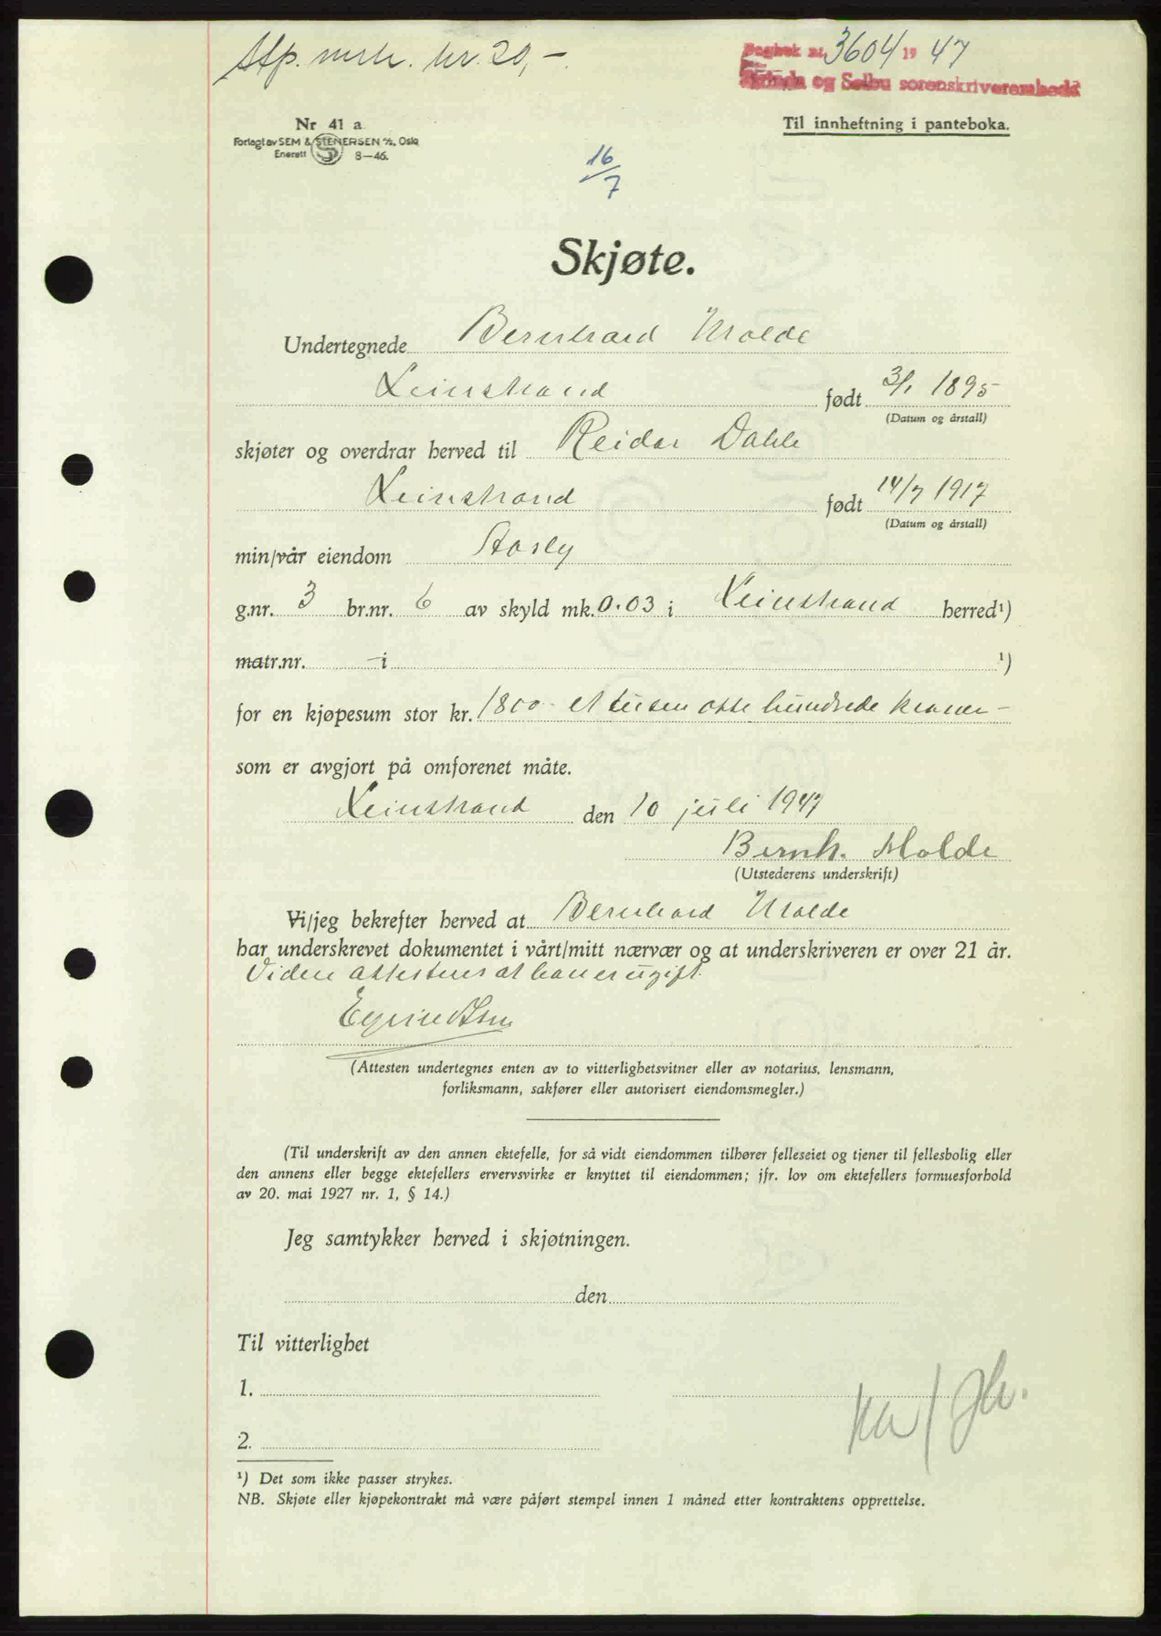 Stp. merk. kr. 20,-
Dagbok nr. 3604 19 47
Strinda og Selbu sorenskriverembede
Nr 41 a
Forlagt av SEM & STENERSEN A/S, Oslo
Enerett S 8—46.
Til innheftning i panteboka.
16/7
Skjøte.
Undertegnede Bernhard Molde
Leinstrand født 3/1 1895
(Datum og årstall)
skjøter og overdrar herved til Reidar Dahle
Leinstrand født 14/7 1917
(Datum og årstall)
min/vår eiendom
g.nr. 3 br.nr. 6 av skyld mk. 0.03 i Leinstrand herred¹)
matr.nr. i ¹)
for en kjøpesum stor kr. 1800 - et tusen otte hundrede kroner -
som er avgjort på omforenet måte.
Leinstrand den 10 juli 1947
Bernh. Molde
(Utstederens underskrift)
Vi/jeg bekrefter herved at Bernhard Molde
har underskrevet dokumentet i vårt/mitt nærvær og at underskriveren er over 21 år.
Videre attesteres at han er ugift.
(Attesten undertegnes enten av to vitterlighetsvitner eller av notarius, lensmann,
forliksmann, sakfører eller autorisert eiendomsmegler.)
(Til underskrift av den annen ektefelle, for så vidt eiendommen tilhører felleseiet og tjener til fellesbolig eller
den annens eller begge ektefellers ervervsvirke er knyttet til eiendommen; jfr. lov om ektefellers formuesforhold
av 20. mai 1927 nr. 1, § 14.)
Jeg samtykker herved i skjøtningen.
den
Til vitterlighet
1.
2.
¹) Det som ikke passer strykes.
NB. Skjøte eller kjøpekontrakt må være påført stempel innen 1 måned etter kontraktens opprettelse.